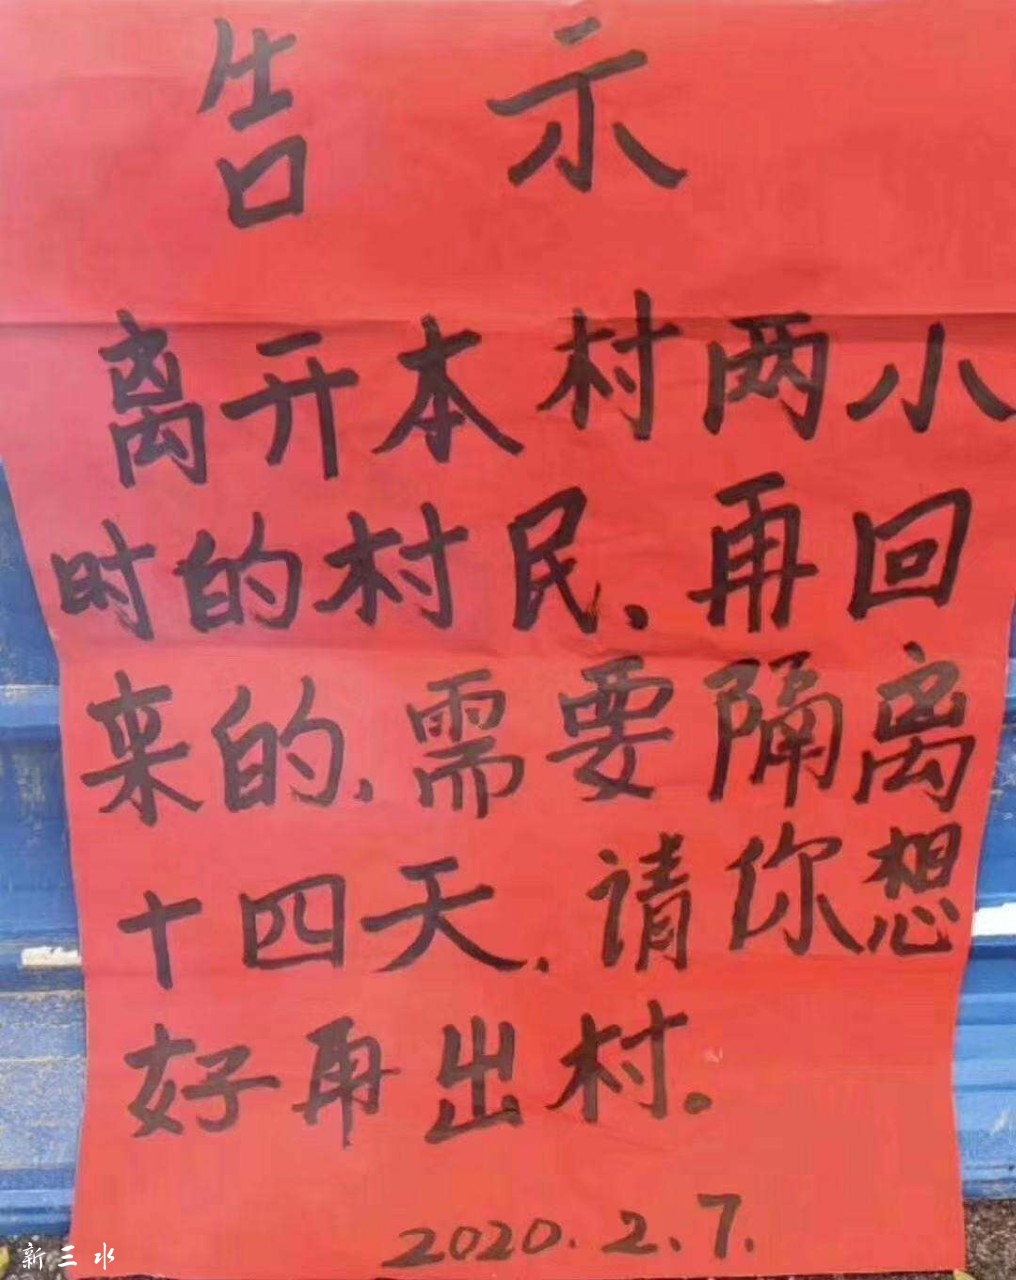 告示
离开本村两小
时的村民、再回
来的、需要隔离
十四天、请你想
好再出村。
2020.2.7.
新三水